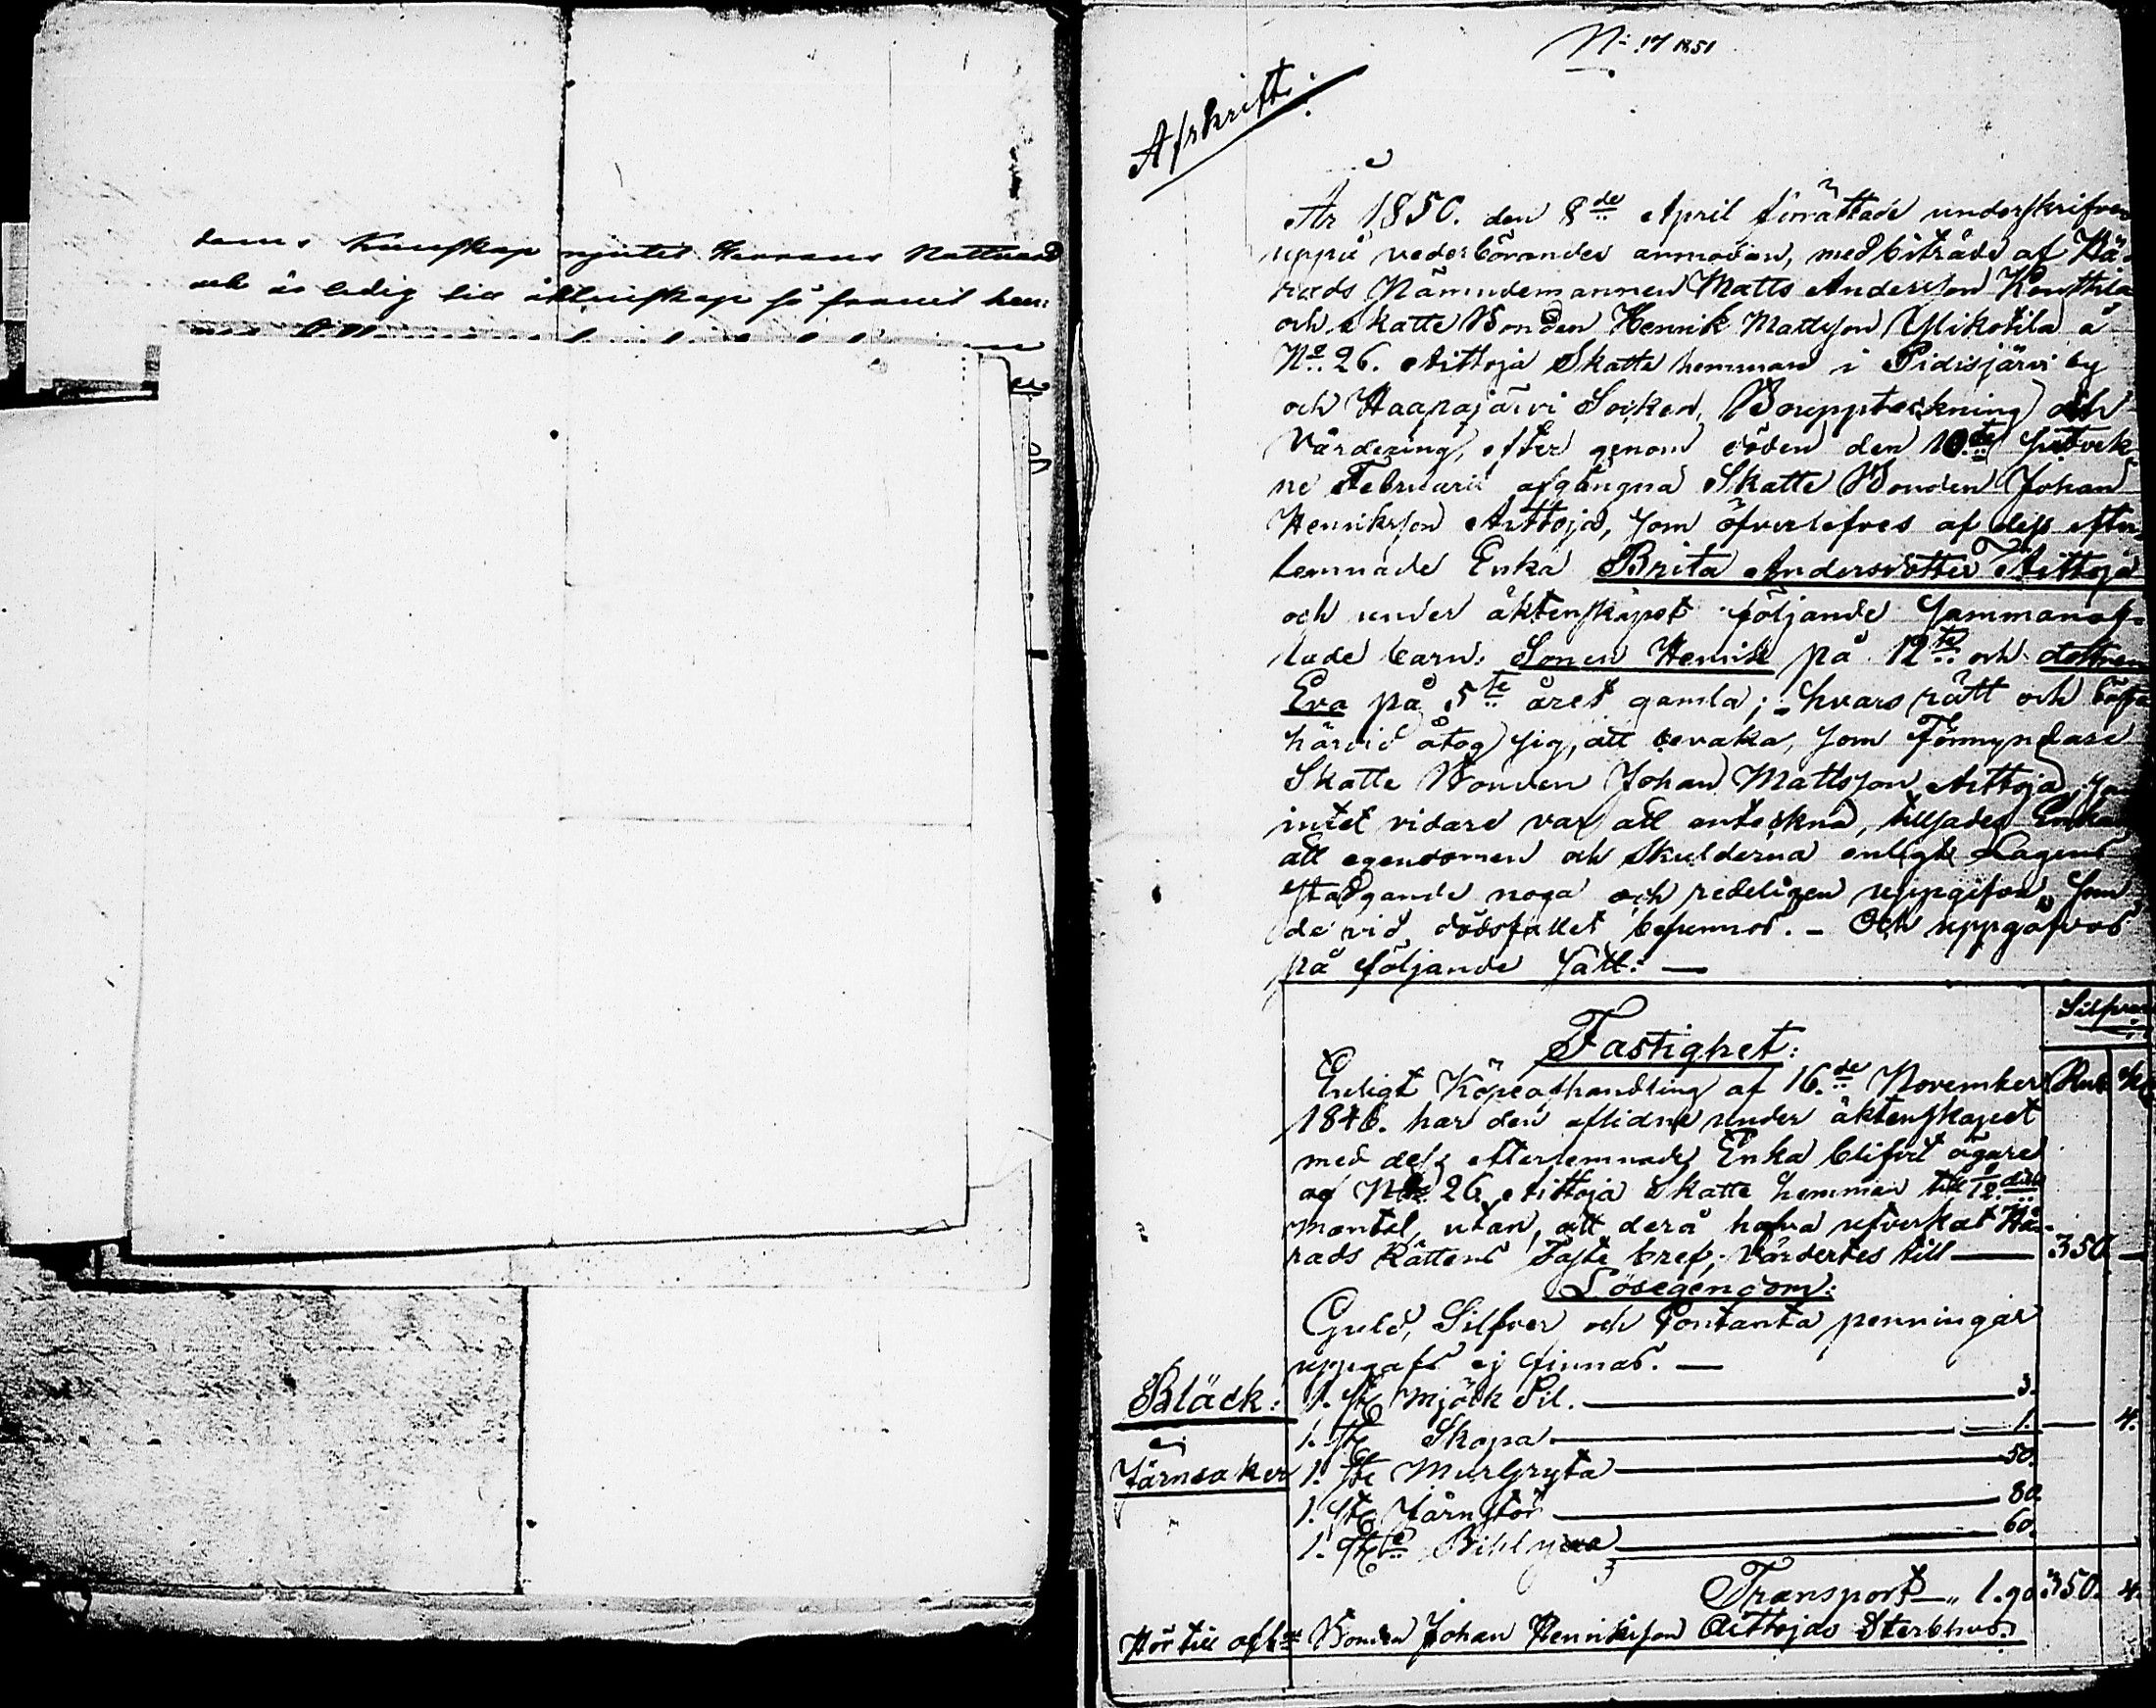 dems Kunskap njutit Herrans Nattvard
och är ledig till äktenskap så framt hen:
N: 17 1851
Afskrift:
År 1850. den 8de April förrättade underskrifven
uppå vederbörandes anmodan, med biträde af Hä-
rads Nämndemannen Matts Andersson Konttila
och skatte Bonden Henrik Mattsson Ylikotila å
No. 26. Aittoja Skatte hemman i Pidisjärvi by
och Haapajärvi Socken, Bouppteckning och
Värdering, efter genom döden den 10de sistvek-
ne Februarii afgångna Skatte Bonden Johan
Henriksson Aittoja, som öfverlefves af dess efter-
lemnade Enka Brita Andersdotter Aittoja
och under äktenskapet följande sammanaf-
lade barn: Sonen Henrik på 12te och dottren
Eva på 5te året gamla; hvars rätt och bästa
härvid åtog sig, att bevaka, som Förmyndare
Skatte Bonden Johan Mattsson Aittoja.
intet vidare var att anteckna, tillsades Enkan
att egendomen och Skulderna enligt Lagens
stadgande noga och redeligen uppgifva, som
de vid dödsfallet befunnos. - Och uppgåfvos
på följande sätt: —
Silfver
Fastighet:
Enligt Köpeafhandling af 16de November Rub. K.
1846. har den aflidne under äktenskapet
med dess efterlemnade Enka blifvit ägare
af No. 26 Aittoja Skatte hemman till
mantel, utan, att derå hafva utverkat Hä-
rads Rättens Faste bref, värdertes till — 350. —
Lösegendom:
Guld, Silfver och Contanta penningar
uppgafs ej finnas. —
Bläck: 1. st. Mjölk Sil. — 3.
1. st. Skopa — 1. — 4.
Järnsaker 1. st. Murgryta — 50.
1. st. Järnstör — 80.
1. st. — 60.
Transport — „ 1.90. 350. 4.
Hör till afl:ne Bonden Johan Henriksson Aittojas Sterbhus.